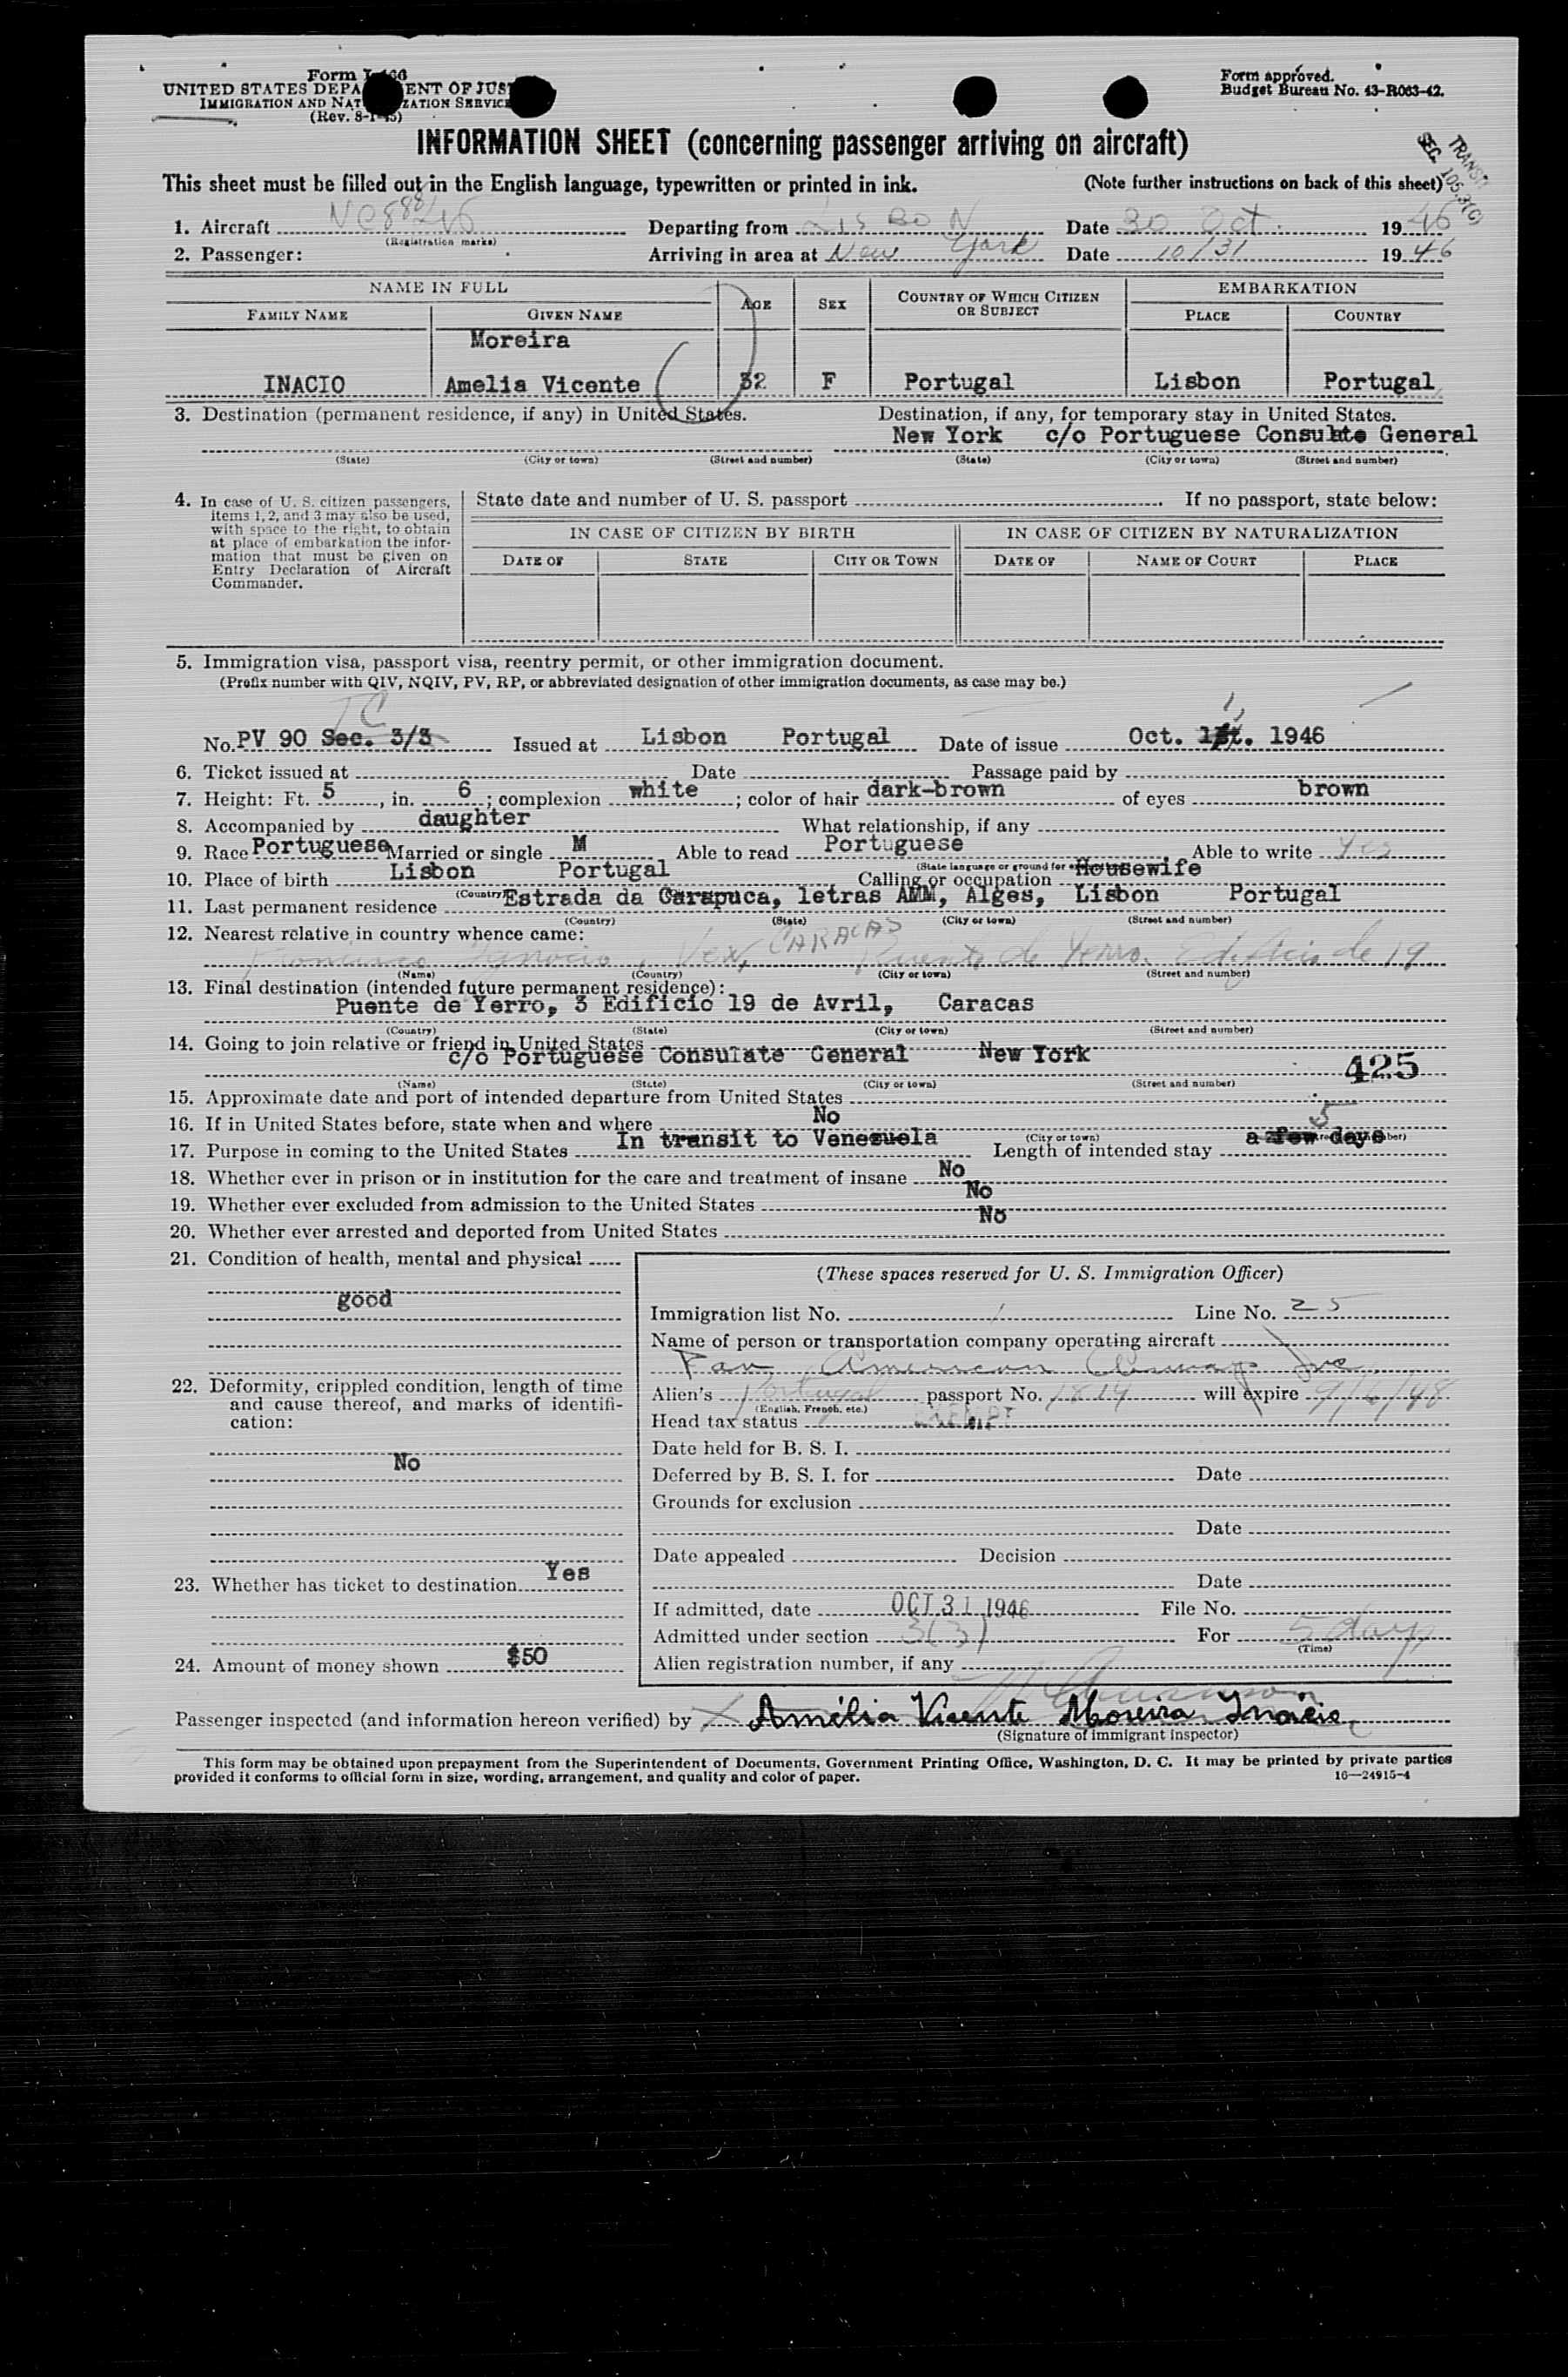 Form I-466
UNITED STATES DEPA ENT OF JUS
IMMIGRATION AND NAT ZATION SERVICE
(Rev. 8-1-45)
Form approved.
Budget Bureau No. 43-R063-42.
INFORMATION SHEET (concerning passenger arriving on aircraft)
TRANSIT
SEC. 105.3(C)
This sheet must be filled out in the English language, typewritten or printed in ink. (Note further instructions on back of this sheet)
1. Aircraft Departing from LISBON Date 30 Oct. 1946
(Registration marks)
2. Passenger: Arriving in area at New York Date 10/31 1946
NAME IN FULL AGE SEX COUNTRY OF WHICH CITIZEN OR SUBJECT EMBARKATION
FAMILY NAME GIVEN NAME PLACE COUNTRY
Moreira
INACIO Amelia Vicente 32 F Portugal Lisbon Portugal
3. Destination (permanent residence, if any) in United States. Destination, if any, for temporary stay in United States.
New York c/o Portuguese Consulate General
(State) (City or town) (Street and number) (State) (City or town) (Street and number)
4. In case of U. S. citizen passengers, items 1, 2, and 3 may also be used, with space to the right, to obtain at place of embarkation the information that must be given on Entry Declaration of Aircraft Commander.
State date and number of U. S. passport If no passport, state below:
IN CASE OF CITIZEN BY BIRTH IN CASE OF CITIZEN BY NATURALIZATION
DATE OF STATE CITY OR TOWN DATE OF NAME OF COURT PLACE
5. Immigration visa, passport visa, reentry permit, or other immigration document.
(Prefix number with QIV, NQIV, PV, RP, or abbreviated designation of other immigration documents, as case may be.)
TC
No. PV 90 Sec. 3/3 Issued at Lisbon Portugal Date of issue Oct. 1st. 1946
6. Ticket issued at Date Passage paid by
7. Height: Ft. 5, in. 6; complexion white; color of hair dark-brown of eyes brown
8. Accompanied by daughter What relationship, if any
9. Race Portuguese Married or single M Able to read Portuguese Able to write Yes
10. Place of birth Lisbon Portugal Calling or occupation Housewife
11. Last permanent residence Estrada da Garapuca, letras AMM, Alges, Lisbon Portugal
(Country) (State) (City or town) (Street and number)
12. Nearest relative in country whence came:
Francisco Ignacio, Ven, CARACAS Puente de Yerro. Edificio de 19
(Name) (Country) (City or town) (Street and number)
13. Final destination (intended future permanent residence):
Puente de Yerro, 3 Edificio 19 de Avril, Caracas
(Country) (State) (City or town) (Street and number)
14. Going to join relative or friend in United States
c/o Portuguese Consulate General New York
425
(Name) (State) (City or town) (Street and number)
15. Approximate date and port of intended departure from United States
16. If in United States before, state when and where No
5
17. Purpose in coming to the United States In transit to Venezuela Length of intended stay a few days
18. Whether ever in prison or in institution for the care and treatment of insane No
19. Whether ever excluded from admission to the United States No
20. Whether ever arrested and deported from United States No
21. Condition of health, mental and physical
good
22. Deformity, crippled condition, length of time and cause thereof, and marks of identification:
No
23. Whether has ticket to destination Yes
24. Amount of money shown $50
(These spaces reserved for U. S. Immigration Officer)
Immigration list No. 1 Line No. 25
Name of person or transportation company operating aircraft
Pan American Airways Inc
Alien's Portugal passport No. 1814 will expire 9/6/48
(English, French, etc.)
Head tax status EXEMPT
Date held for B. S. I.
Deferred by B. S. I. for Date
Grounds for exclusion
Date
Date appealed Decision
Date
If admitted, date OCT 31 1946 File No.
Admitted under section 3(3) For 5 days
(Time)
Alien registration number, if any
Passenger inspected (and information hereon verified) by X Amélia Vicente Moreira Inácio
(Signature of immigrant inspector)
This form may be obtained upon prepayment from the Superintendent of Documents, Government Printing Office, Washington, D. C. It may be printed by private parties
provided it conforms to official form in size, wording, arrangement, and quality and color of paper. 16—24915-4